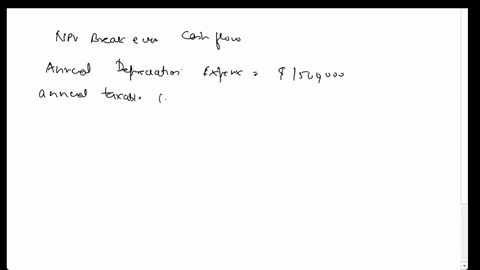 NPV Break even Cash flow
Annual Depreciation Expense = $ 1500,000
annual taxable (